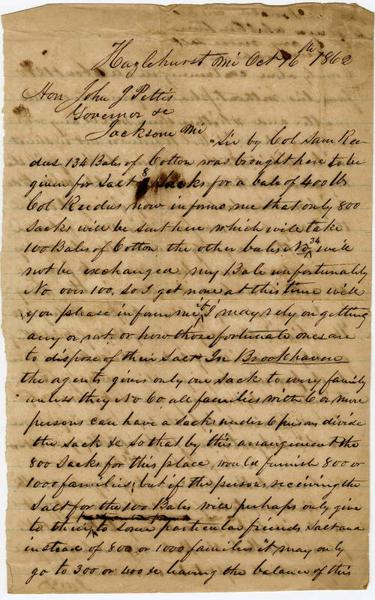 Hazlehurst Mi Oct 16th 1862
Hon John J Pettis
Governor &c
Jackson Mi
Sir by Col Sam Ree-
dus 134 Bales of Cotton was brought here to be
given for Salt 8 Sacks for a bale of 400 lb
Col Reedus now informs me that only 800
Sacks will be sent here which will take
100 Bales of Cotton the other bales No 34 will
not be exchanged my Bale unfortunately
No over 100, so I get none at this time will
you please inform me if I may rely on getting
any or not, or how those fortunate ones are
to dispose of their Salt In Brookhaven
the agents gives only one Sack to every family
unless they No 6 all families with 6 or more
persons can have a Sack under 6 persons divide
the Sack &c So that by this arrangement the
800 Sacks for this place would furnish 800 or
1000 families; but if the persons receiving the
Salt for the 100 Bales will perhaps only give
to their some particular friends Salt and
instead of 800 or 1000 families it may only
go to 300 or 400 &c leaving the balance of this